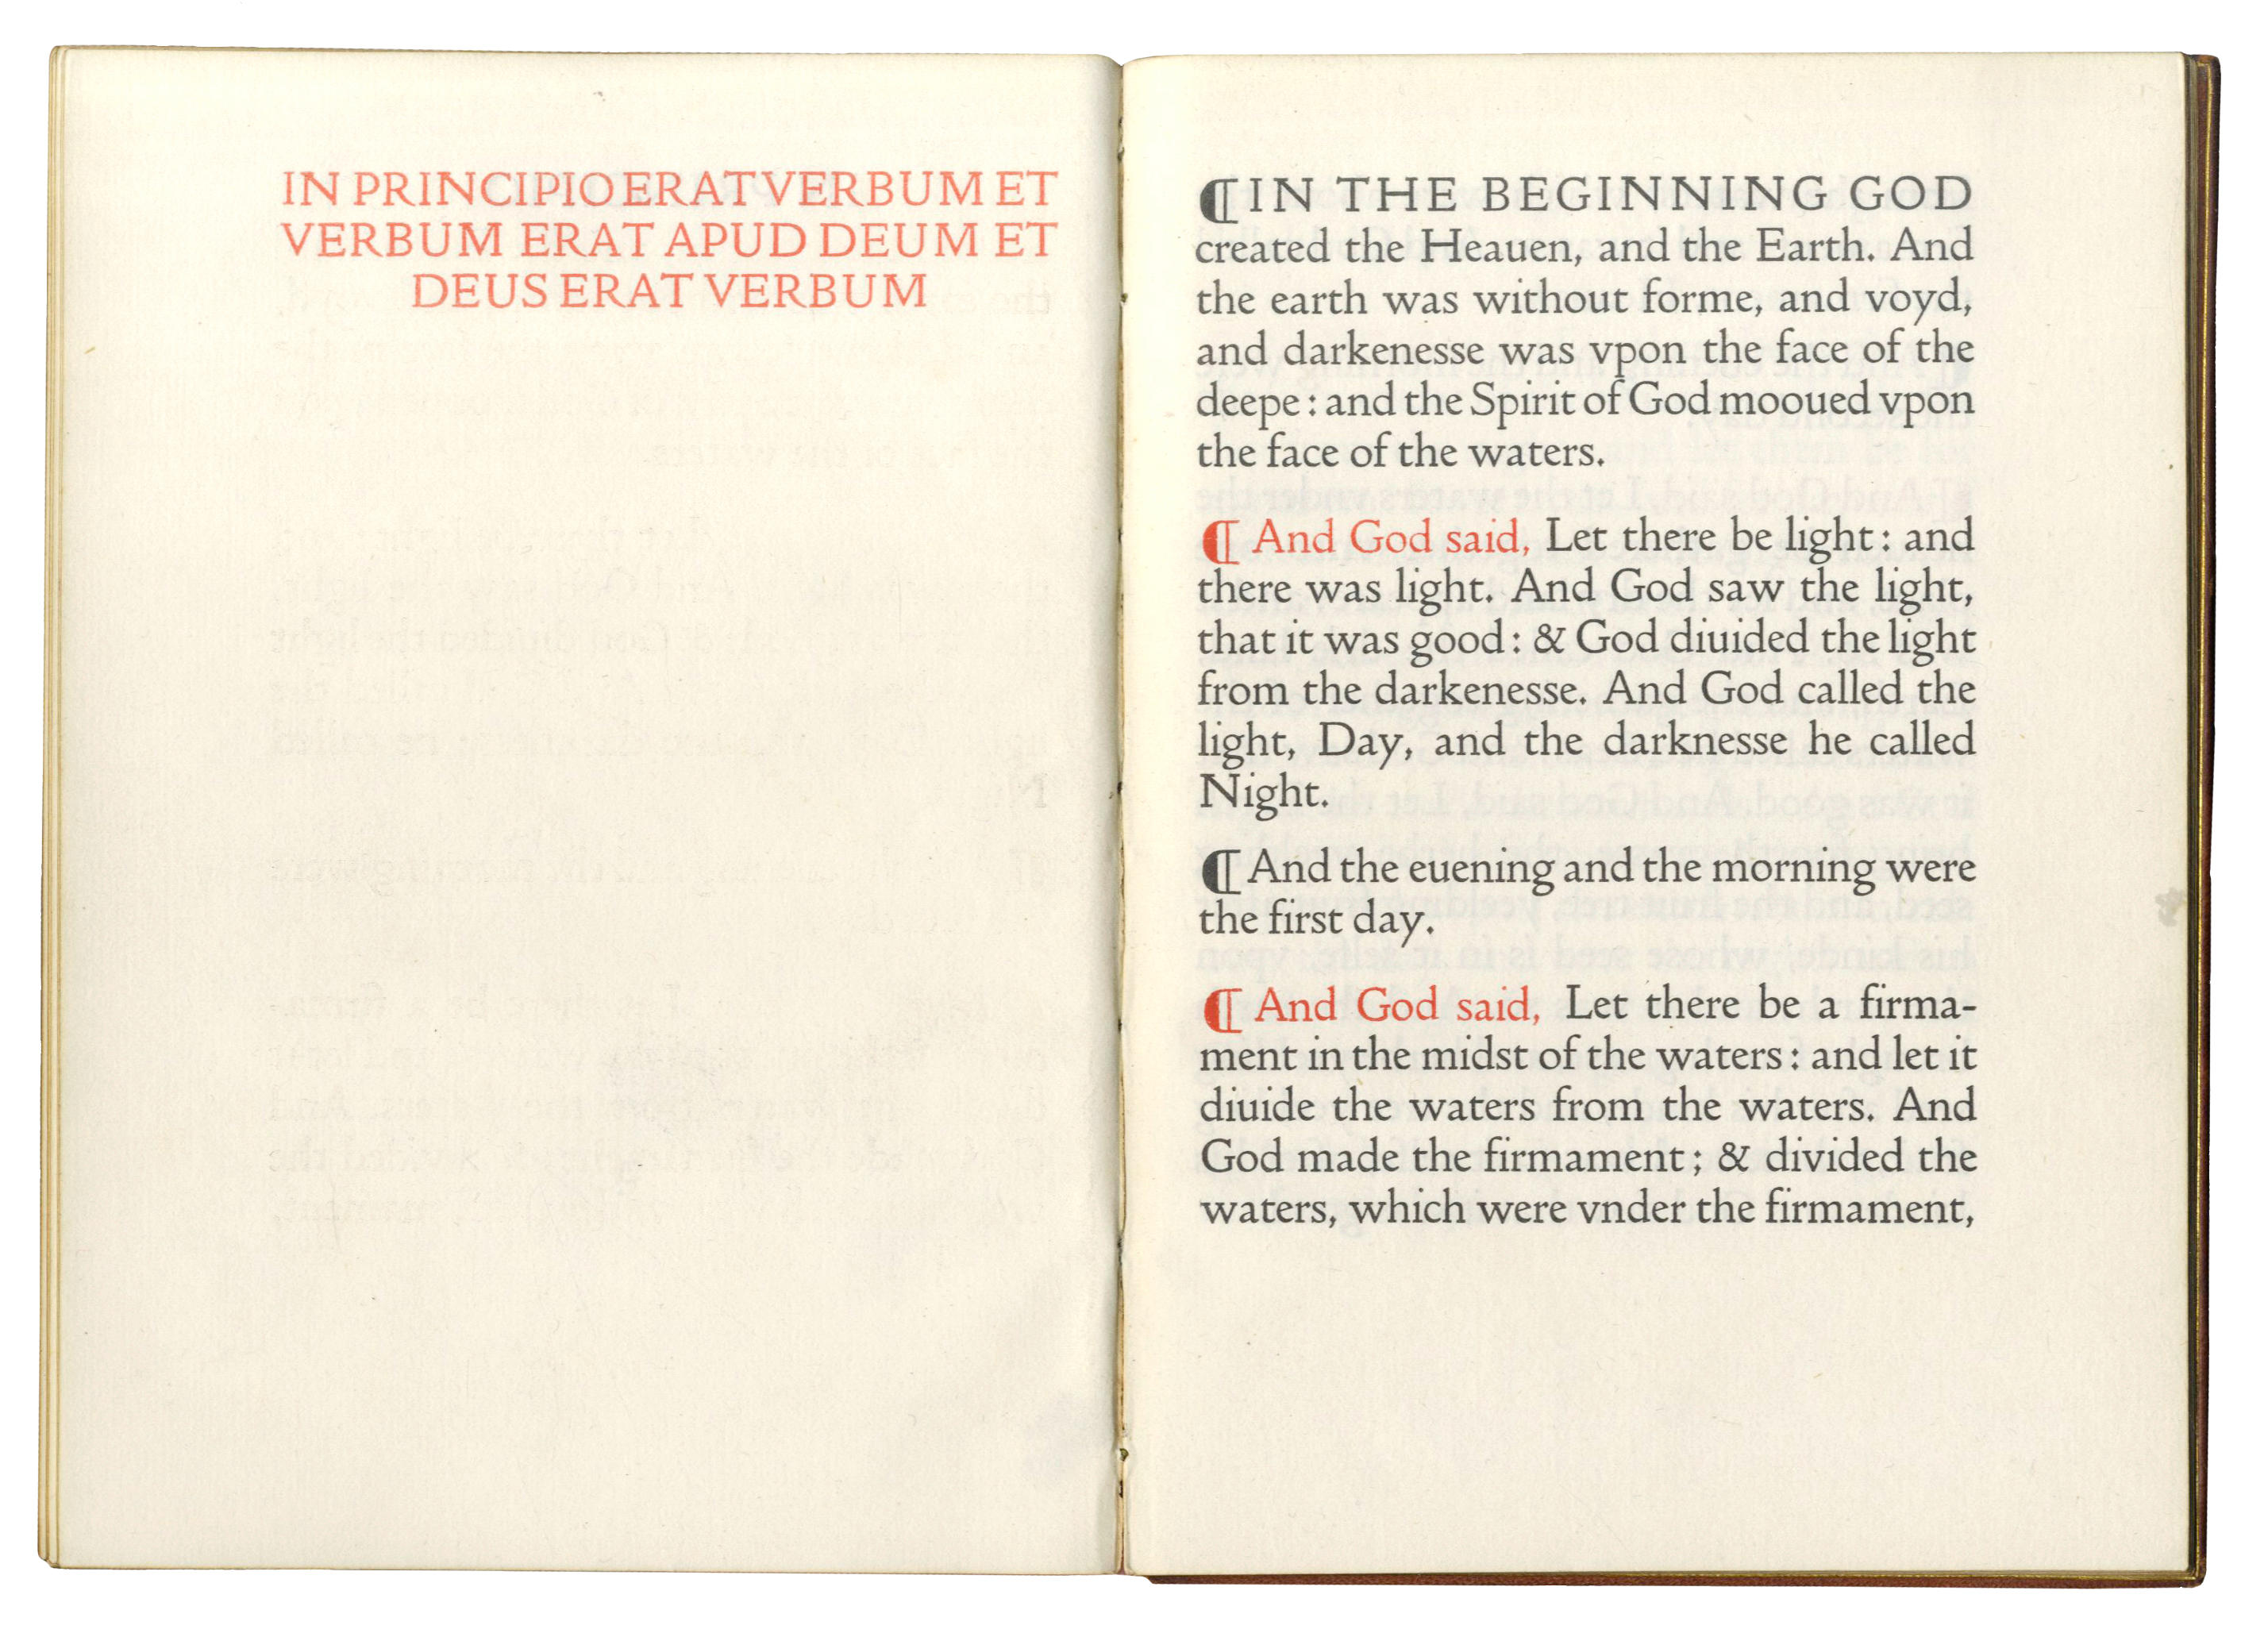 IN PRINCIPIO ERAT VERBUM ET
VERBUM ERAT APUD DEUM ET
DEUS ERAT VERBUM
¶ IN THE BEGINNING GOD
created the Heauen, and the Earth. And
the earth was without forme, and voyd,
and darkenesse was vpon the face of the
deepe: and the Spirit of God mooued vpon
the face of the waters.
¶ And God said, Let there be light: and
there was light. And God saw the light,
that it was good: & God diuided the light
from the darkenesse. And God called the
light, Day, and the darknesse he called
Night.
¶ And the euening and the morning were
the first day.
¶ And God said, Let there be a firma-
ment in the midst of the waters: and let it
diuide the waters from the waters. And
God made the firmament; & divided the
waters, which were vnder the firmament,